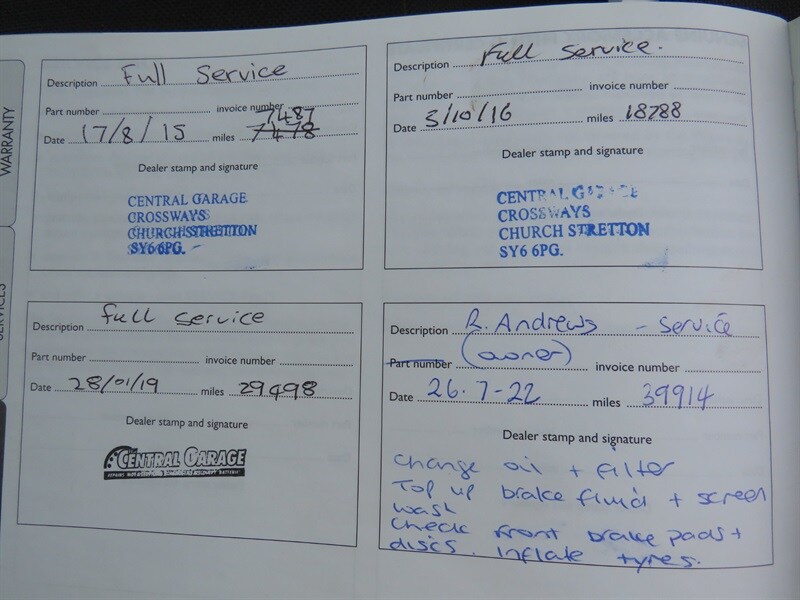 WARRANTY
Description Full Service
Part number invoice number
7487
Date 17/8/15 miles 7478
Dealer stamp and signature
CENTRAL GARAGE
CROSSWAYS
CHURCH STRETTON
SY6 6PG.
Description Full Service.
Part number invoice number
Date 5/10/16 miles 18788
Dealer stamp and signature
CENTRAL GARAGE
CROSSWAYS
CHURCH STRETTON
SY6 6PG.
SERVICES
Description Full Service
Part number invoice number
Date 28/01/19 miles 29498
Dealer stamp and signature
CENTRAL GARAGE
Description R. Andrews - Service
(owner)
Part number invoice number
Date 26.7-22 miles 39914
Dealer stamp and signature
Change oil + filter
Top up brake fluid + screen
wash
Check front brake pads +
discs. Inflate tyres.